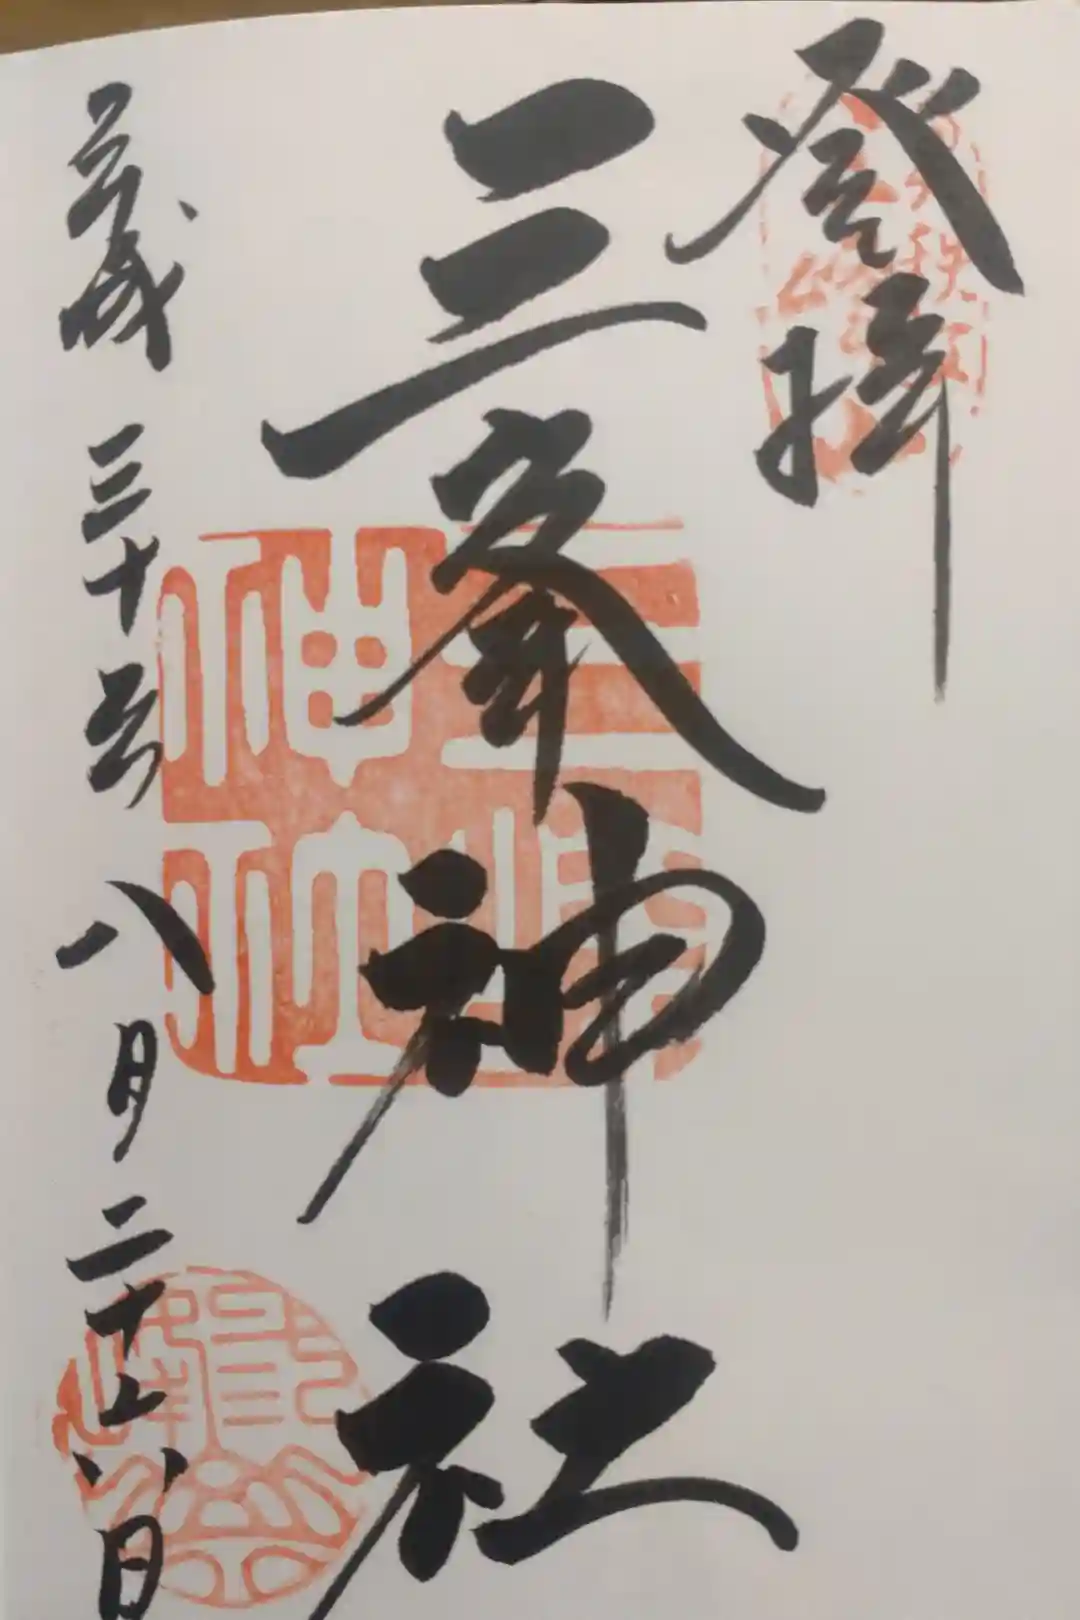 登拝
三峯神社
平成三十年八月二十六日
三峰神社